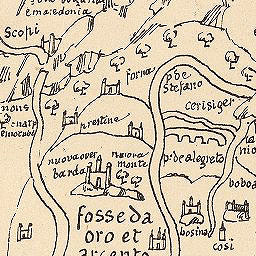 e macedonia
Scopi
forna
p de
Stefano
cerisiger
mons
prestine
nuova over
barda
nuova
monte
p. de alegreto
la
nio
boboa
fosse da
oro et
argento
bosina
cosi